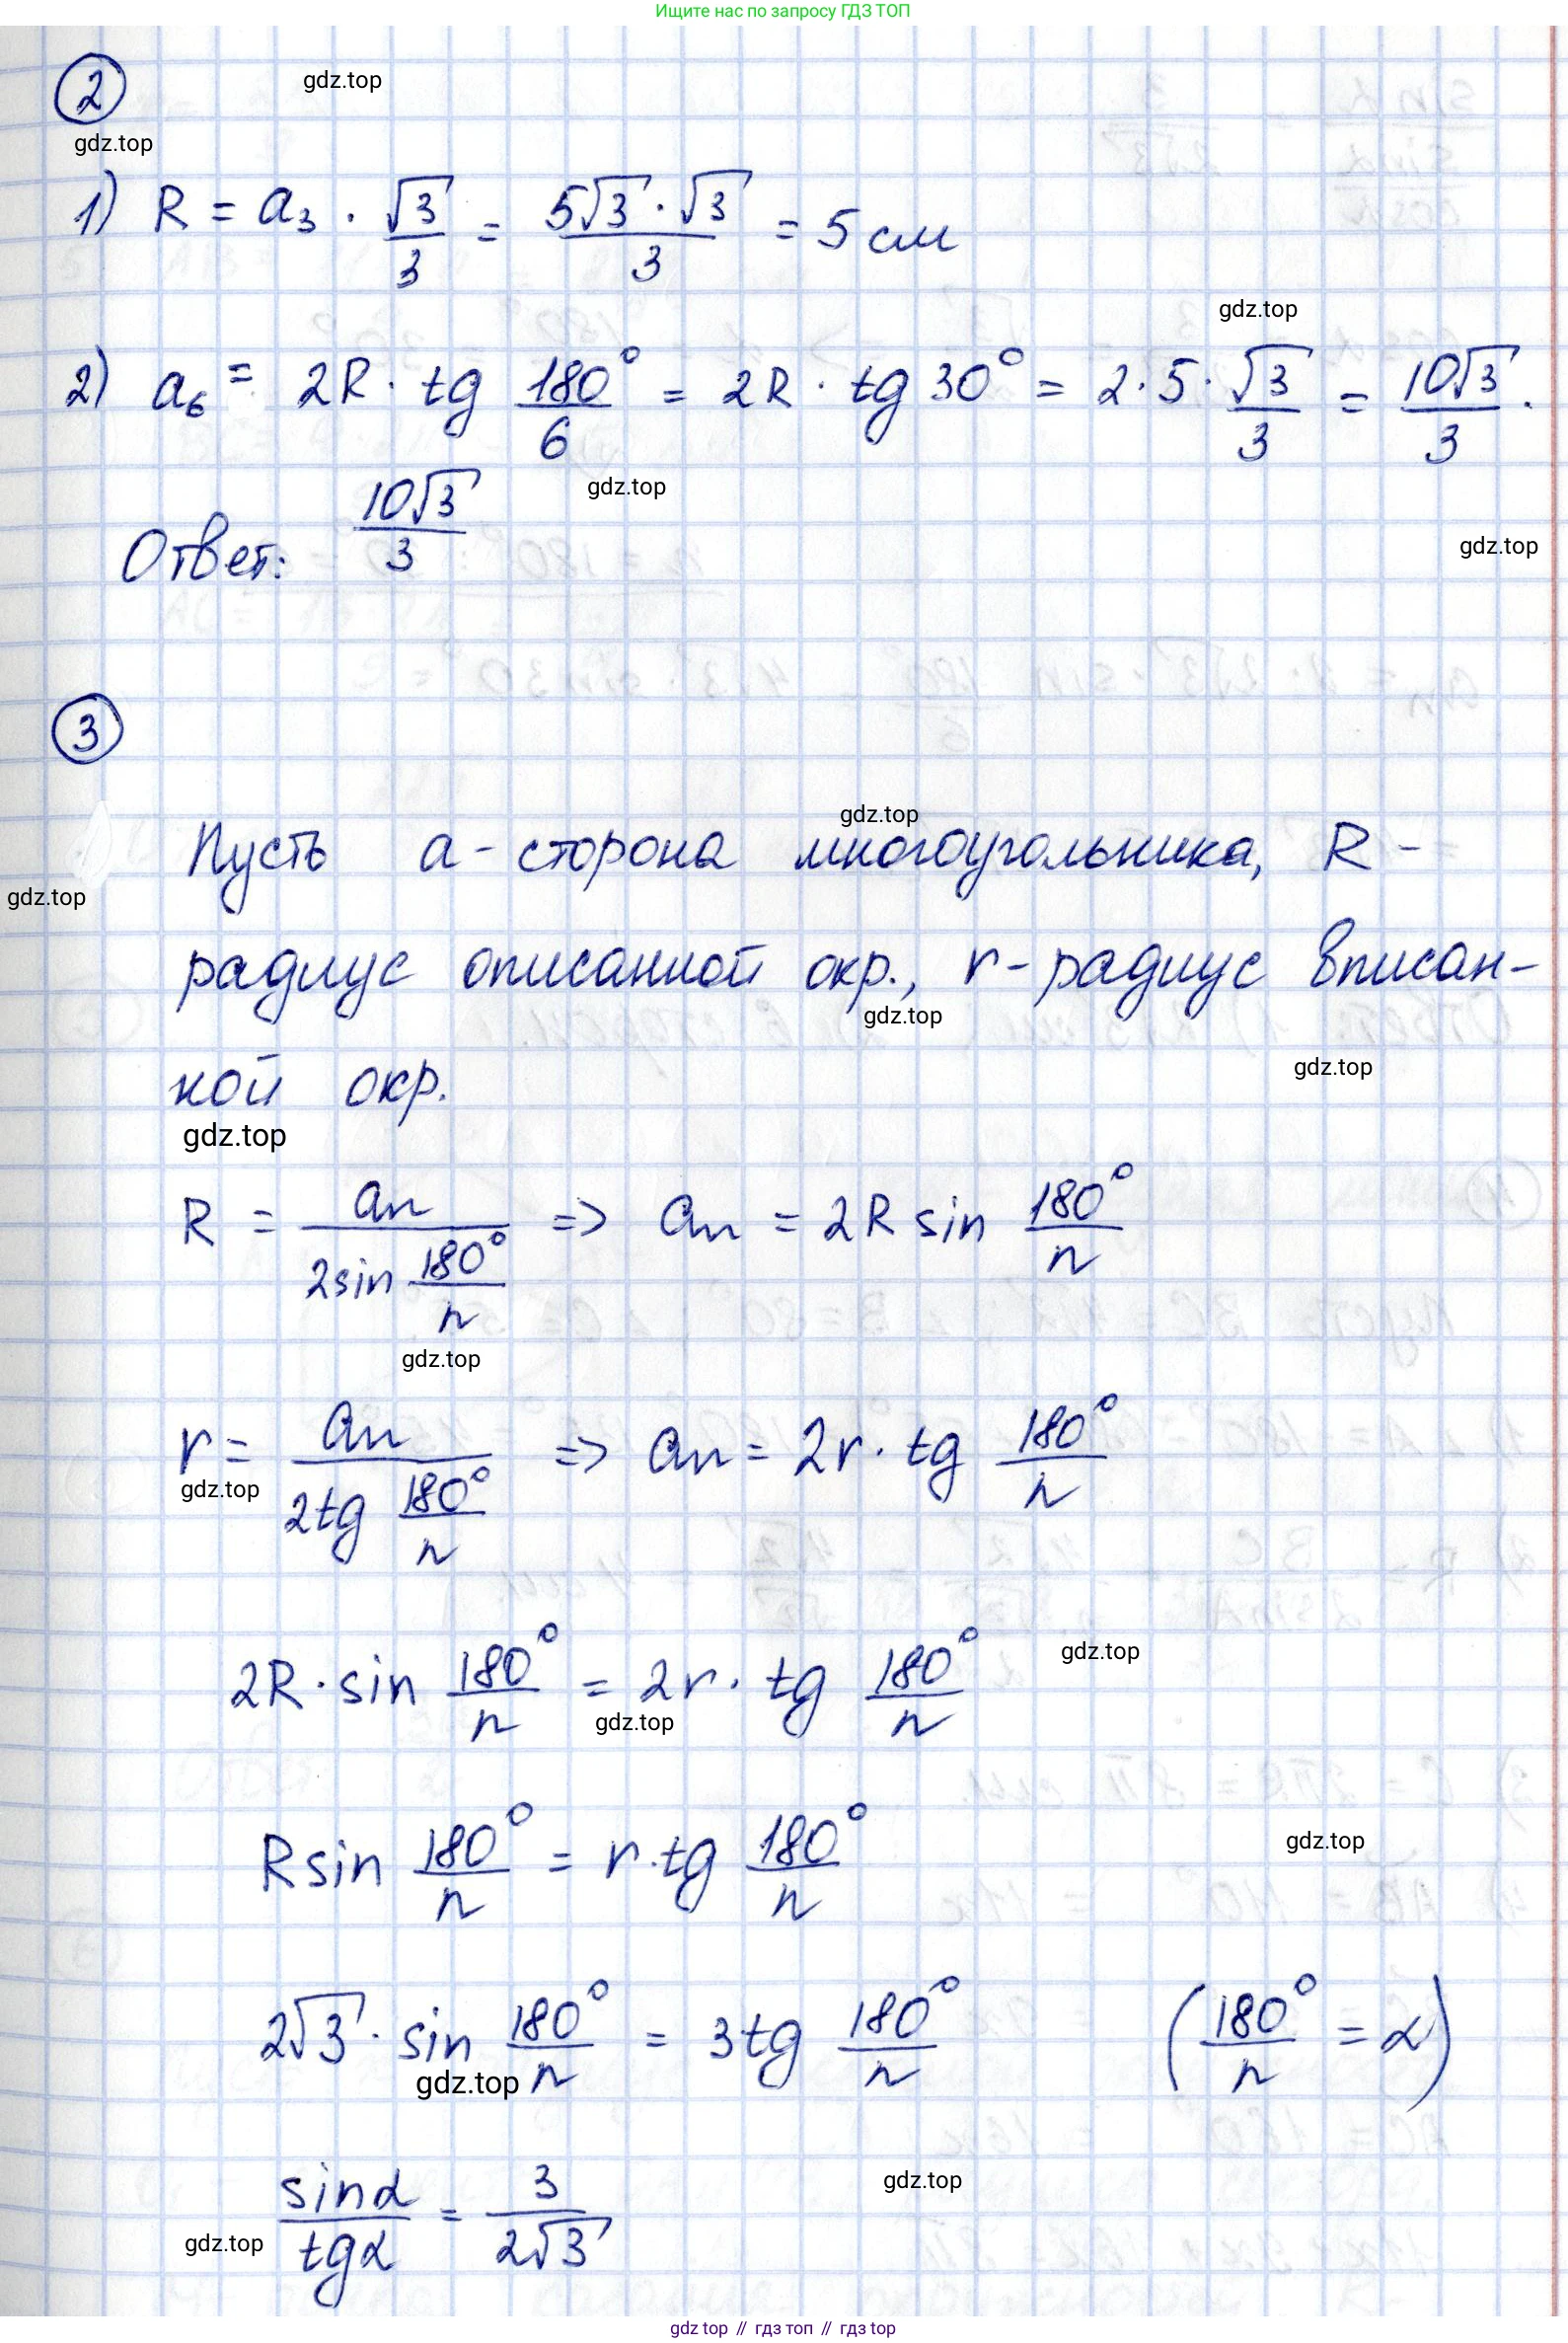 Ищите нас по запросу ГДЗ ТОП
2
gdz.top
gdz.top
1) R = a₃ · √3/3 = 5√3·√3/3 = 5 см
gdz.top
2) a₆ = 2R · tg 180°/6 = 2R · tg 30° = 2·5·√3/3 = 10√3/3.
gdz.top
Ответ: 10√3/3
gdz.top
3
gdz.top
Пусть a - сторона многоугольника, R -
gdz.top
радиус описанной окр., r - радиус вписан-
gdz.top
ной окр.
gdz.top
gdz.top
R = aₙ/(2sin 180°/n) => aₙ = 2R sin 180°/n
gdz.top
r = aₙ/(2tg 180°/n) => aₙ = 2r · tg 180°/n
gdz.top
2R · sin 180°/n = 2r · tg 180°/n
gdz.top
gdz.top
R sin 180°/n = r·tg 180°/n
gdz.top
2√3 · sin 180°/n = 3tg 180°/n (180°/n = α)
gdz.top
sinα/tgα = 3/2√3
gdz.top
gdz.top
gdz top // гдз топ // gdz top